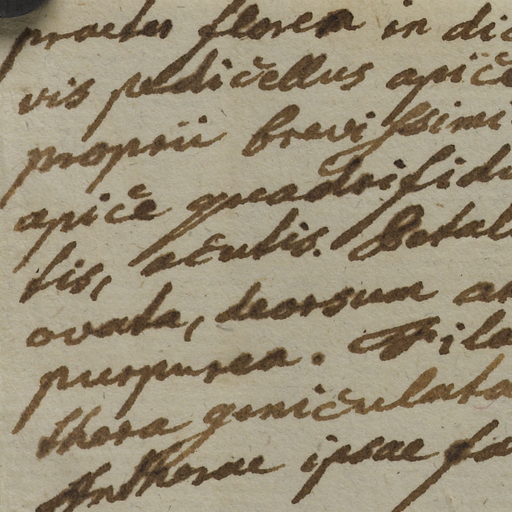 praeter florem in dic
vis pedicellus apice
proprii brevissimi
apice quadrifidu
tis, acutis. Petal
ovata, deorsum an
purpurea. Fila
thera geniculata
Antherae ipsae fa